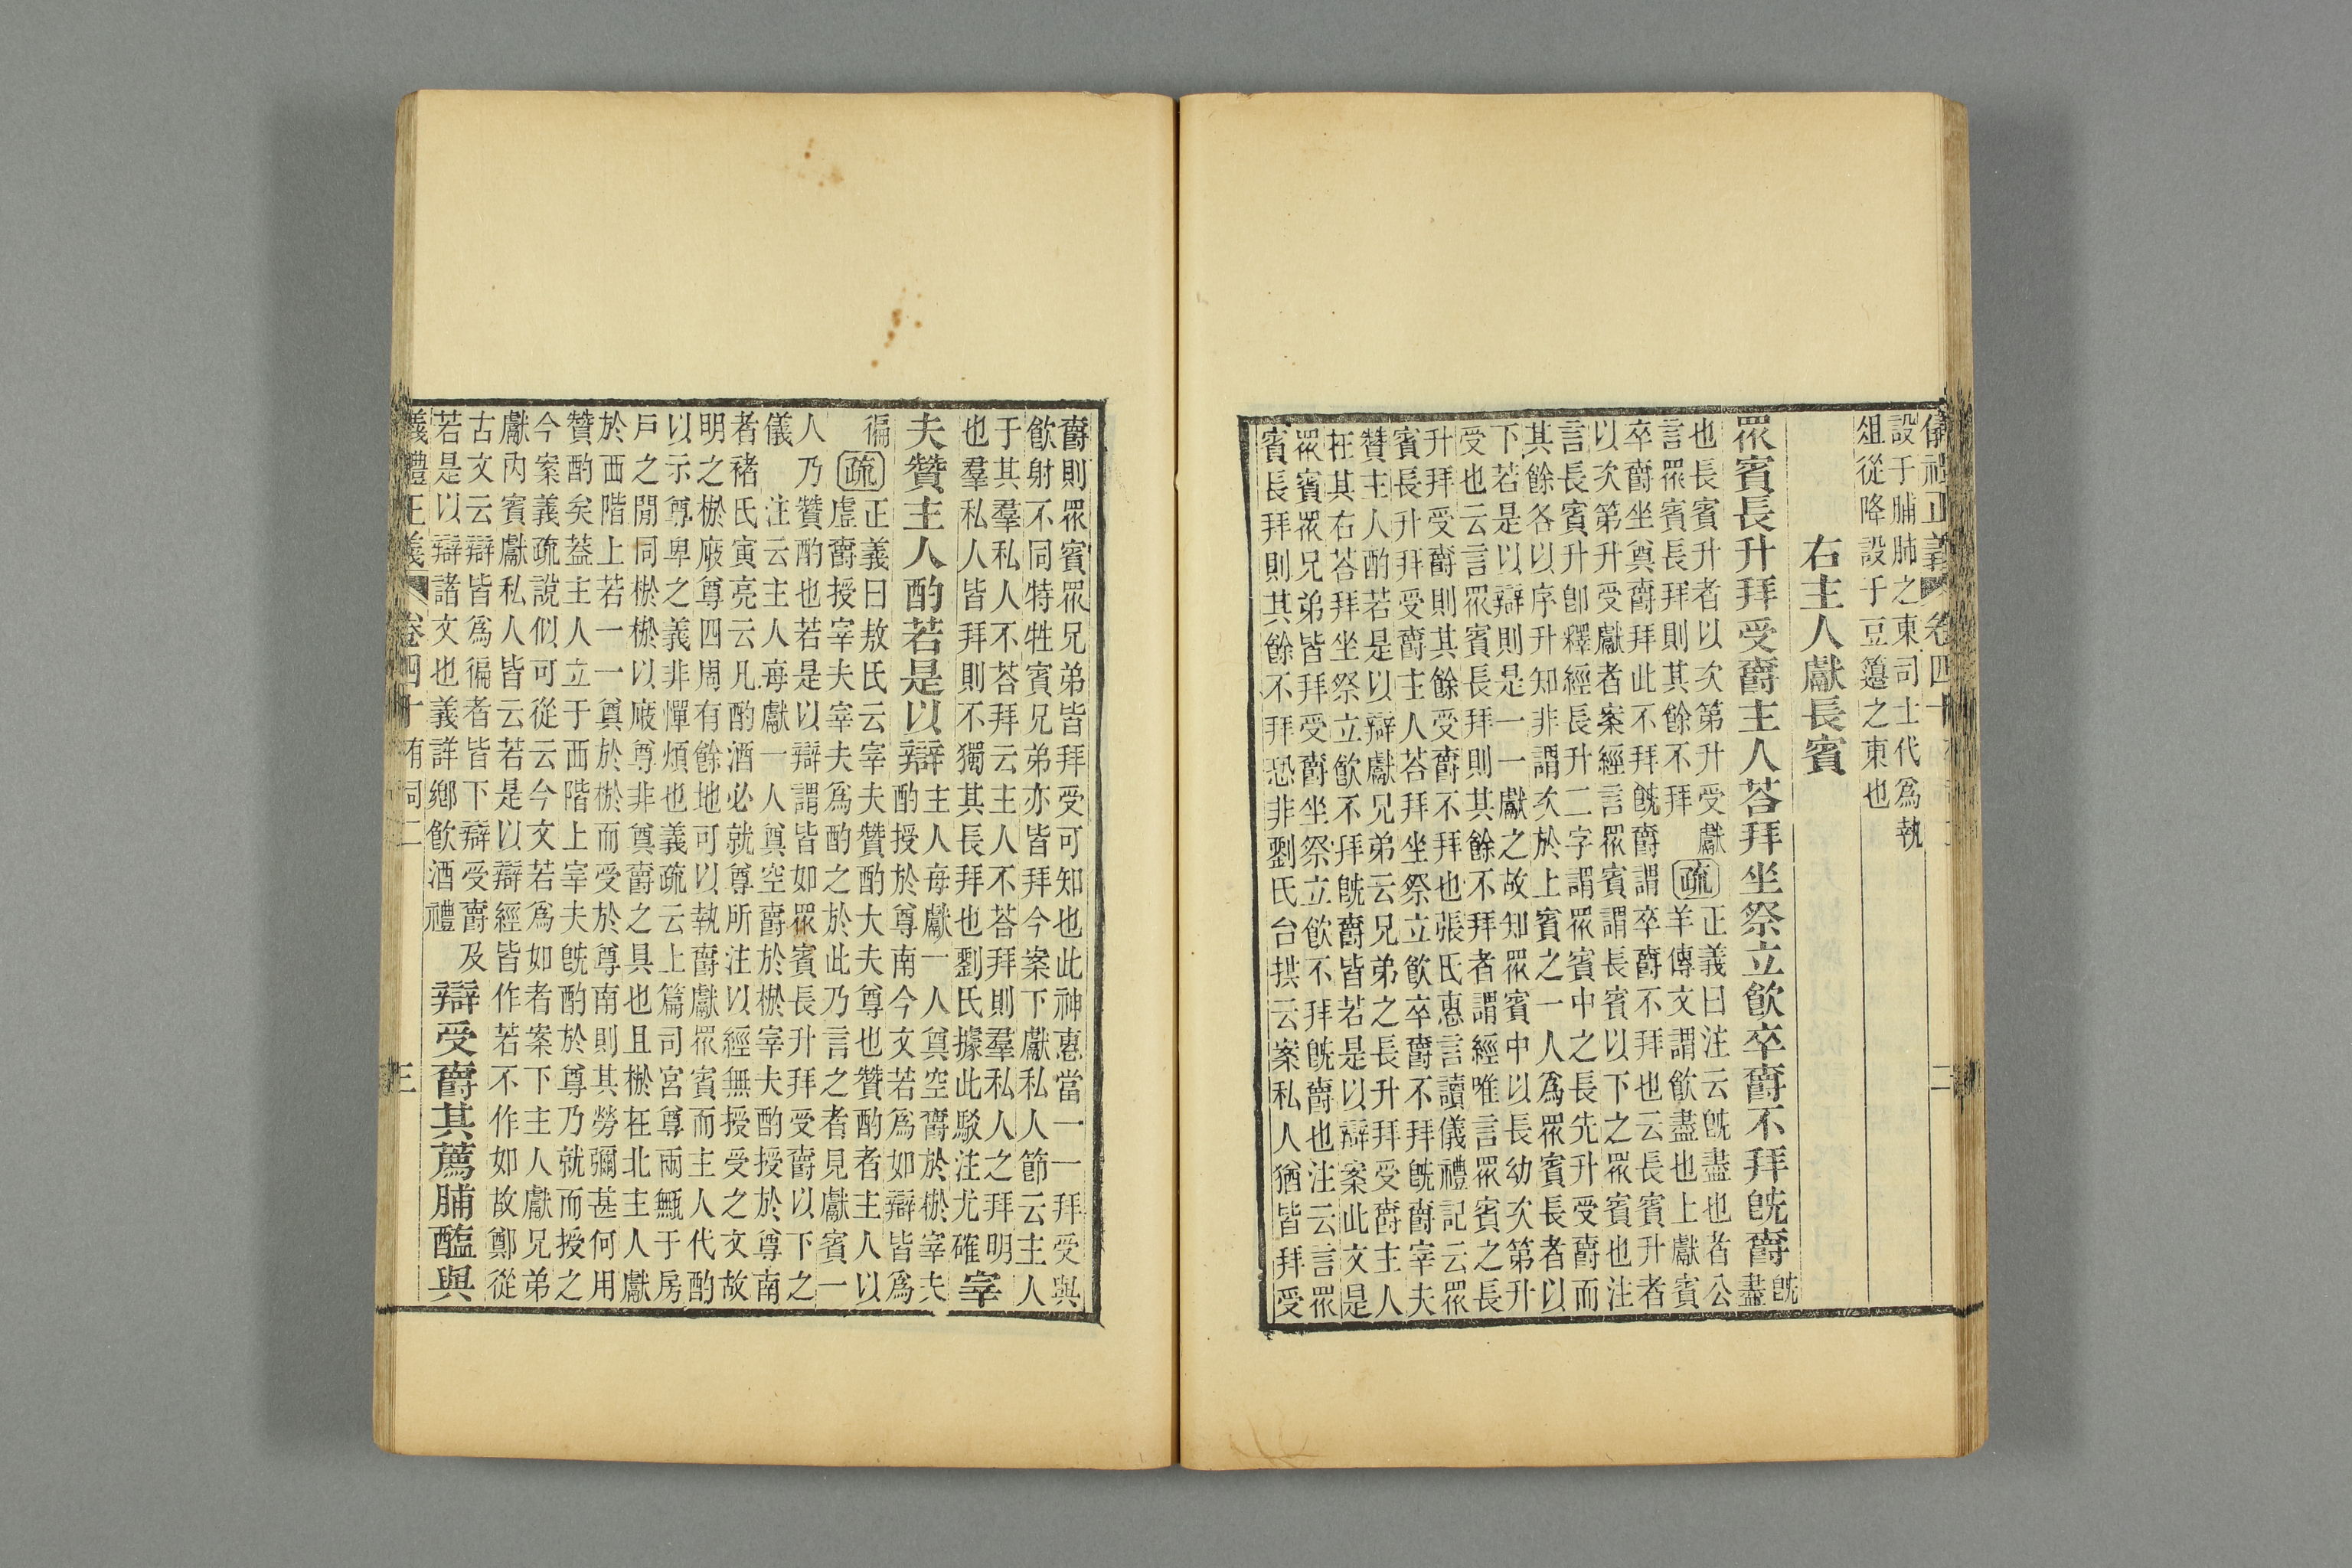 儀禮正義 卷四十 二
設于脯肺之東司士代爲執
俎從降設于豆籩之東也
右主人獻長賓
眾賓長升拜受爵主人荅拜坐祭立飲卒爵不拜旣爵
旣
盡
也長賓升者以次第升受獻
言眾賓長拜則其餘不拜
疏
正義曰注云旣盡也者公
羊傳文謂飲盡也上獻賓
卒爵坐奠爵拜此不拜旣爵謂卒爵不拜也云長賓升者
以次第升受獻者案經言眾賓謂長賓以下之眾賓也注
言長賓升卽釋經長升二字謂眾賓中之長先升受爵而
其餘各以序升知非謂次於上賓之一人爲眾賓長者以
下若是以辯則是一一獻之故知眾賓中以長幼次第升
受也云言眾賓長拜則其餘不拜者謂經唯言眾賓之長
升拜受爵則其餘受爵不拜也張氏惠言讀儀禮記云眾
賓長升拜受爵主人荅拜坐祭立飲卒爵不拜旣爵宰夫
贊主人酌若是以辯獻兄弟云兄弟之長升拜受爵主人
在其右荅拜坐祭立飲不拜旣爵皆若是以辯案此文是
眾賓眾兄弟皆拜受爵坐祭立飲不拜旣爵也注云言眾
賓長拜則其餘不拜恐非劉氏台拱云案私人猶皆拜受
爵則眾賓眾兄弟皆拜受可知也此神惠當一一拜受與
飲射不同特牲賓兄弟亦皆拜今案下獻私人節云主人
于其羣私人不荅拜云主人不荅拜則羣私人之拜明
也羣私人皆拜則不獨其長拜也劉氏據此駁注尤確
宰
夫贊主人酌若是以辯
主人每獻一人奠空爵於棜宰夫
酌授於尊南今文若爲如辯皆爲
徧
疏
正義曰敖氏云宰夫贊酌大夫尊也贊酌者主人以
虛爵授宰夫宰夫爲酌之於此乃言之者見獻賓一
人乃贊酌也若是以辯謂皆如眾賓長升拜受爵以下之
儀 注云主人每獻一人奠空爵於棜宰夫酌授於尊南
者褚氏寅亮云凡酌酒必就尊所注以經無授受之文故
明之棜廞尊四周有餘地可以執爵獻眾賓而主人代酌
以示尊卑之義非憚煩也義疏云上篇司宮尊兩甒于房
戶之閒同棜棜以廞尊非奠爵之具也且棜在北主人獻
於西階上若一一奠於棜而受於尊南則其勞彌甚何用
贊酌矣葢主人立于西階上宰夫旣酌於尊乃就而授之
今案義疏說似可從云今文若爲如者案下主人獻兄弟
獻內賓獻私人皆云若是以辯經皆作若不作如故鄭從
古文云辯皆爲徧者皆下辯受爵及
若是以辯諸文也義詳鄉飲酒禮
辯受爵其薦脯醢與
儀禮正義 卷四十 有司二 三